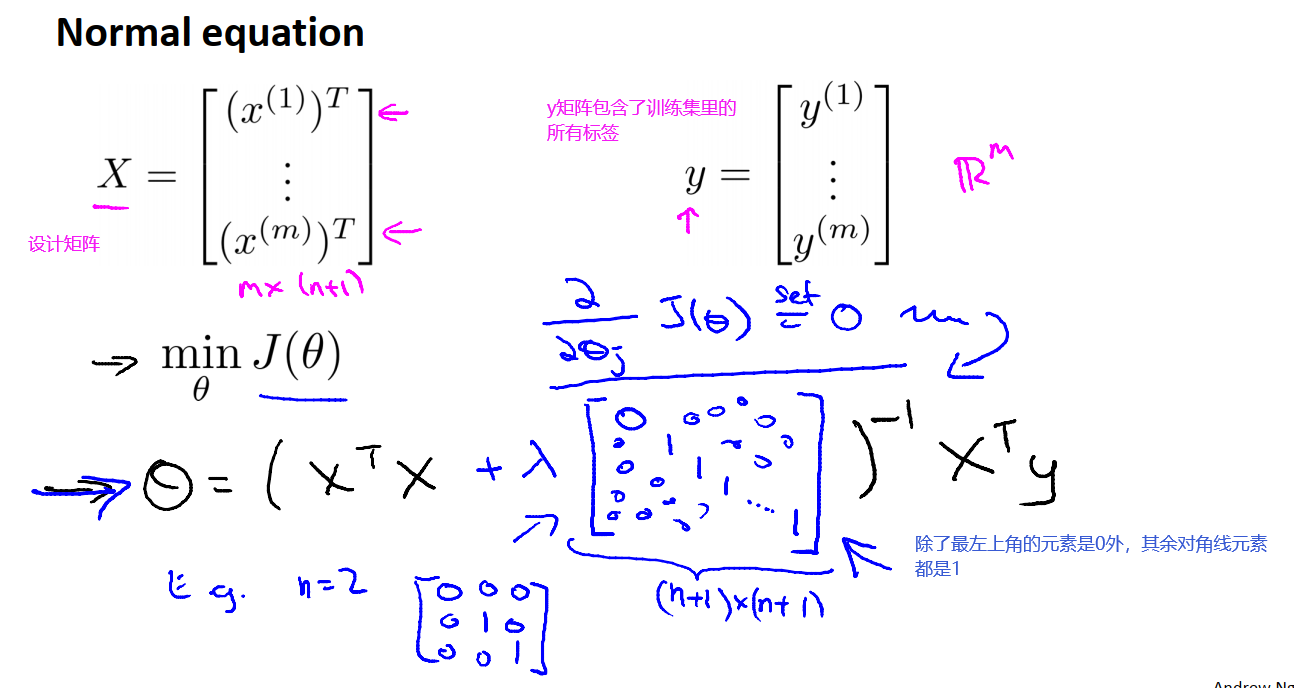 Normal equation
X = [ (x^{(1)})^T ⋮ (x^{(m)})^T ]
设计矩阵
m x (n+1)
y矩阵包含了训练集里的
所有标签
y = [ y^{(1)} ⋮ y^{(m)} ]
ℝ^m
→ min_θ J(θ)
∂/∂θ_j J(θ) set = 0
θ = ( X^T X + λ [ 0 0 0 0 0
0 1 0 0 0
0 1 0
0 0 1
0 0 0 ... 1 ] )^{-1} X^T y
(n+1)x(n+1)
除了最左上角的元素是0外，其余对角线元素
都是1
E.g. n=2
[ 0 0 0
0 1 0
0 0 1 ]